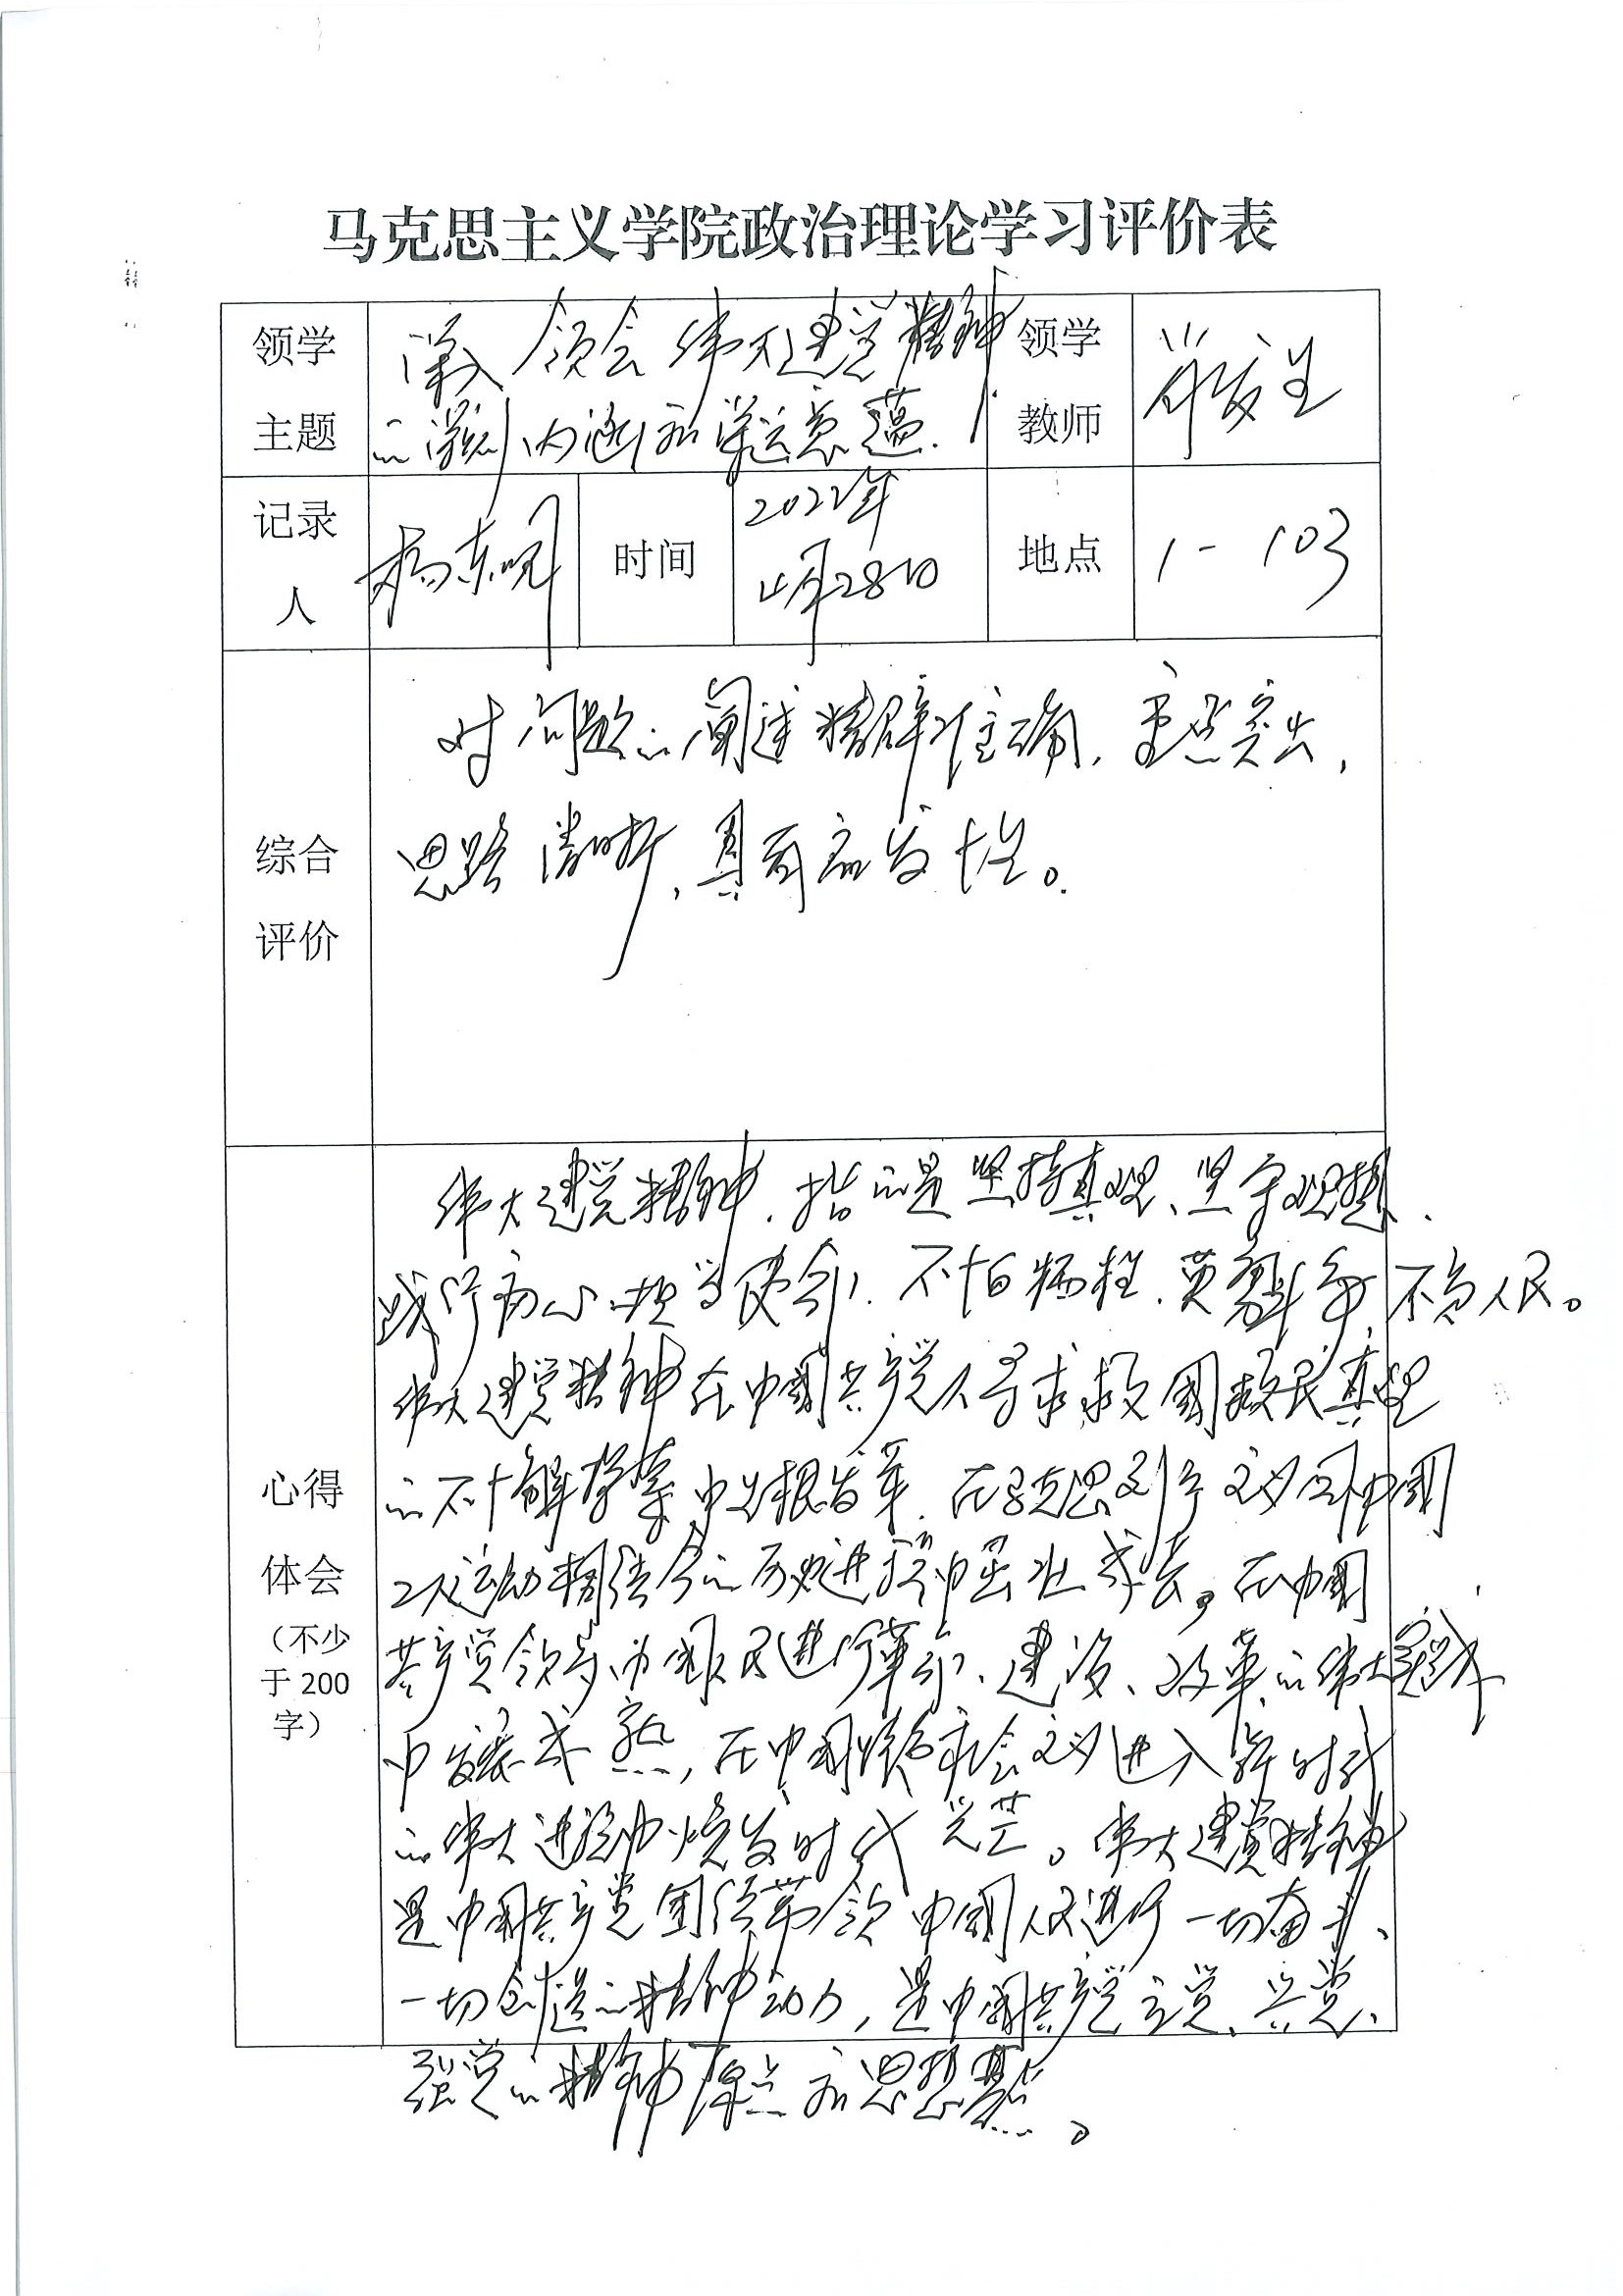 马克思主义学院政治理论学习评价表
领学主题
深入领会伟大建党精神
的深刻内涵和深远意蕴.
领学教师
记录人
杨东明
时间
2022年
4月28日
地点
1-103
综合评价
对问题的阐述精辟准确,重点突出,
思路清晰,具有启发性。
心得体会
(不少于200字)
伟大建党精神,指的是坚持真理、坚守理想、
践行初心、担当使命、不怕牺牲、英勇斗争、不负人民。
伟大建党精神在中国共产党人寻求救国救民真理
的不懈探索中生根发芽,在马克思列宁主义同中国
工人运动相结合的历史进程中茁壮成长,在中国
共产党领导中国人民进行革命、建设、改革的伟大实践中
中发展成熟,在中国特色社会主义进入新时代
的伟大进程中焕发时代光芒。伟大建党精神
是中国共产党团结带领中国人民进行一切奋斗、
一切创造的精神动力,是中国共产党立党、兴党、
强党的精神原点和思想基点。